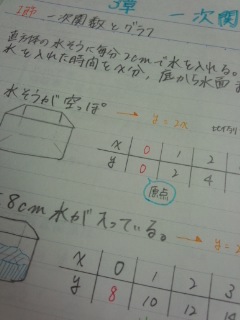 3章 一次関
1節 一次関数とグラフ
直方体の水そうに毎分2cmで水を入れる。
水を入れた時間をx分、底から水面ま
水そうが空っぽ。
→ y = 2x
x 0 1 2
y 0 2 4
原点
8cm 水が入っている。
→ y = 2
x 0 1 2 3
y 8 10 12 14